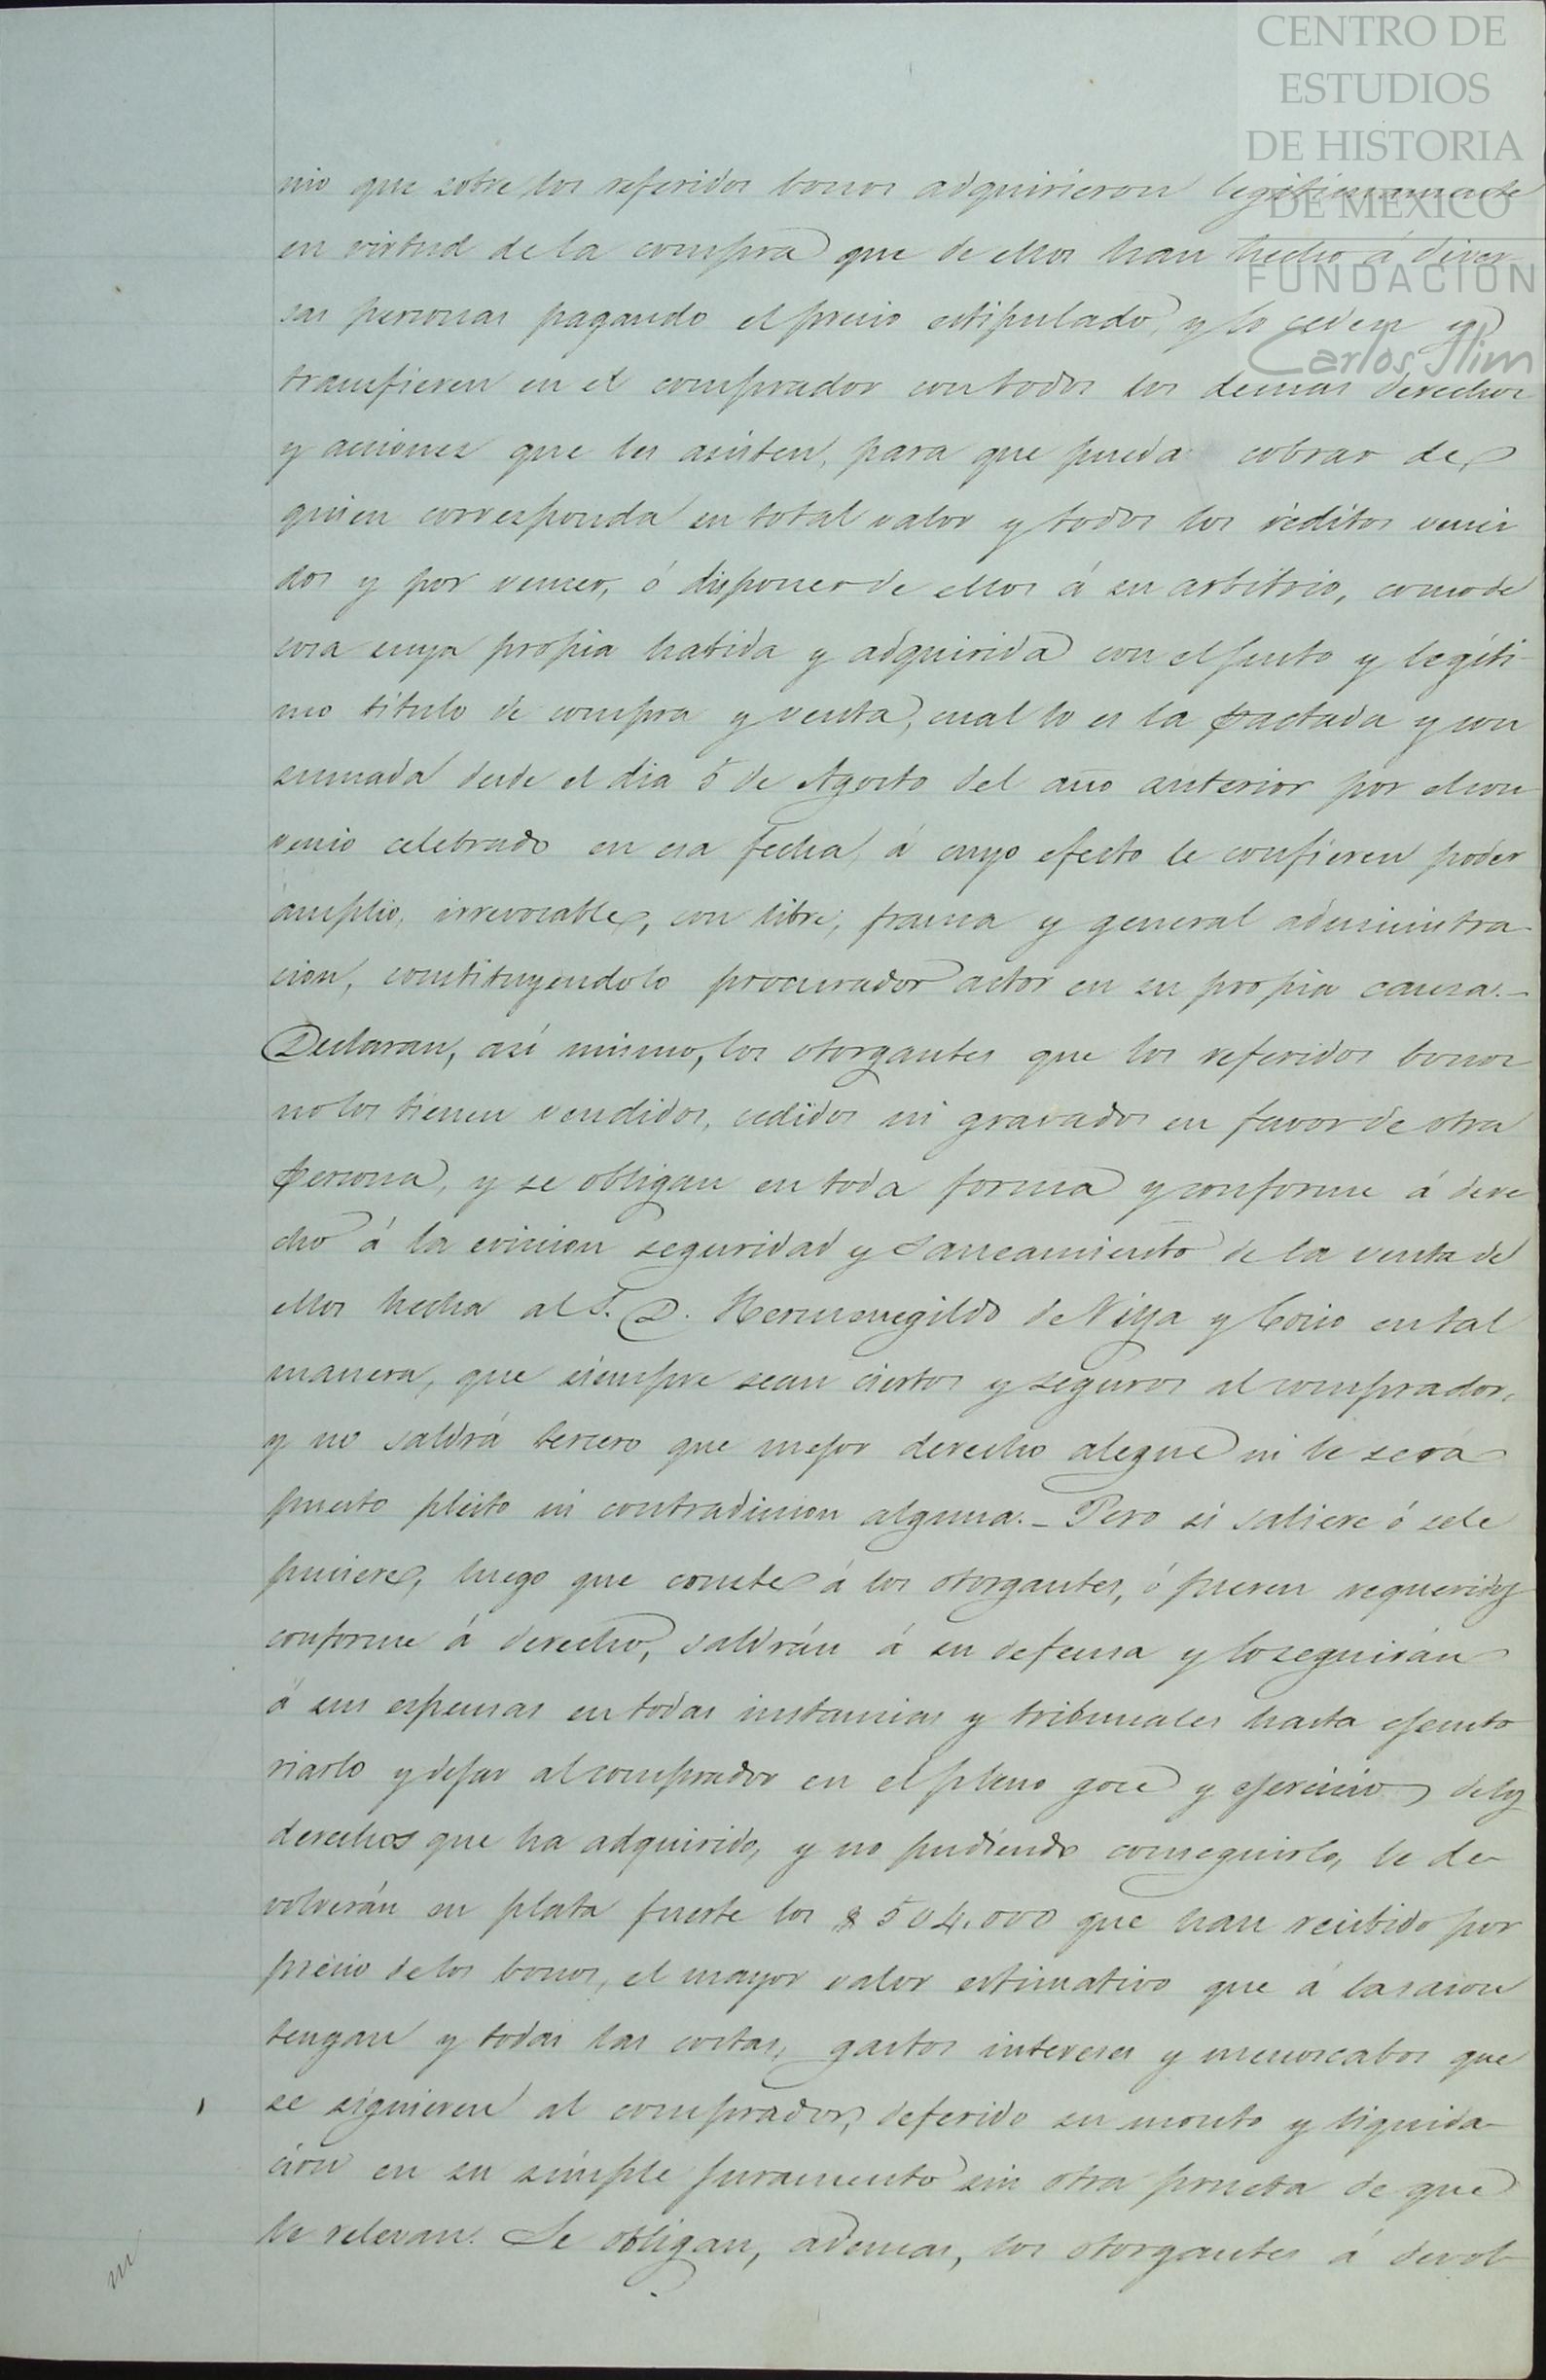 CENTRO DE
ESTUDIOS
DE HISTORIA
DE MEXICO
FUNDACIÓN
Carlos Slim
nio que sobre los referidos bonos adquirieron legítimamente
en virtud de la compra que de ellos han hecho á diver
sas personas pagando el precio estipulado, y lo ceden y
transfieren en el comprador con todos los demas derechos
y acciones que les asisten, para que pueda cobrar de
quien corresponda su total valor y todos los réditos venci
dos y por vencer, ó disponer de ellos á su arbitrio, como de
cosa suya propia habida y adquirida con el justo y legíti-
mo título de compra y venta, cual lo es la pactada y con
sumada desde el dia 5 de Agosto del año anterior por el con
venio celebrado en esa fecha, á cuyo efecto le confieren poder
ámplio, irrevocable, con libre, franca y general administra-
cion, constituyendolo procurador actor en su propia causa.-
Declaran, así mismo, los otorgantes que los referidos bonos
no los tienen vendidos, cedidos ni gravados en favor de otra
persona, y se obligan en toda forma y conforme á dere
cho á la eviccion seguridad y saneamiento de la venta de
ellos hecha al S. D. Hermenegildo de Viya y Cosio en tal
manera, que siempre sean ciertos y seguros al comprador,
y no saldrá tercero que mejor derecho alegue ni le será
puesto pleito ni contradiccion alguna.- Pero si saliere ó se le
pusiere, luego que conste á los otorgantes, ó fueren requeridos
conforme á derecho, saldrán á su defensa y lo seguirán
á sus espensas en todas instancias y tribunales hasta ejecuto
riarlo y dejar al comprador en el pleno goce y ejercicio de los
derechos que ha adquirido, y no pudiendo conseguirlo, le de-
volverán en plata fuerte los $504.000 que han recibido por
precio de los bonos, el mayor valor estimativo que á la sazon
tengan y todas las costas, gastos intereses y menoscabos que
se siguieren al comprador, deferido su monto y liquida-
cion en su simple juramento sin otra prueba de que
le relevan. Se obligan, ademas, los otorgantes á devol